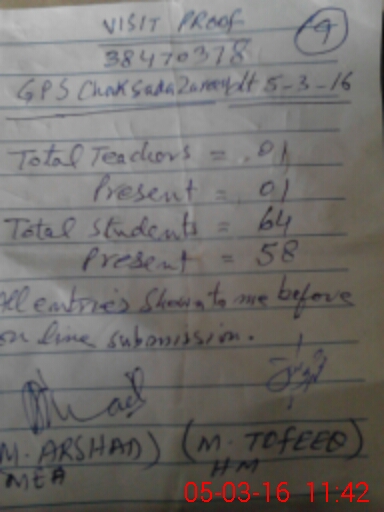 VISIT PROOF
9
38470378
GPS Chak Sada Zareef dt 5-3-16
Total Teachers = 01
Present = 01
Total Students = 64
Present = 58
All entries shown to me before
on line submission.
(M. ARSHAD) (M. TOFEEQ)
MEA HM
05-03-16 11:42